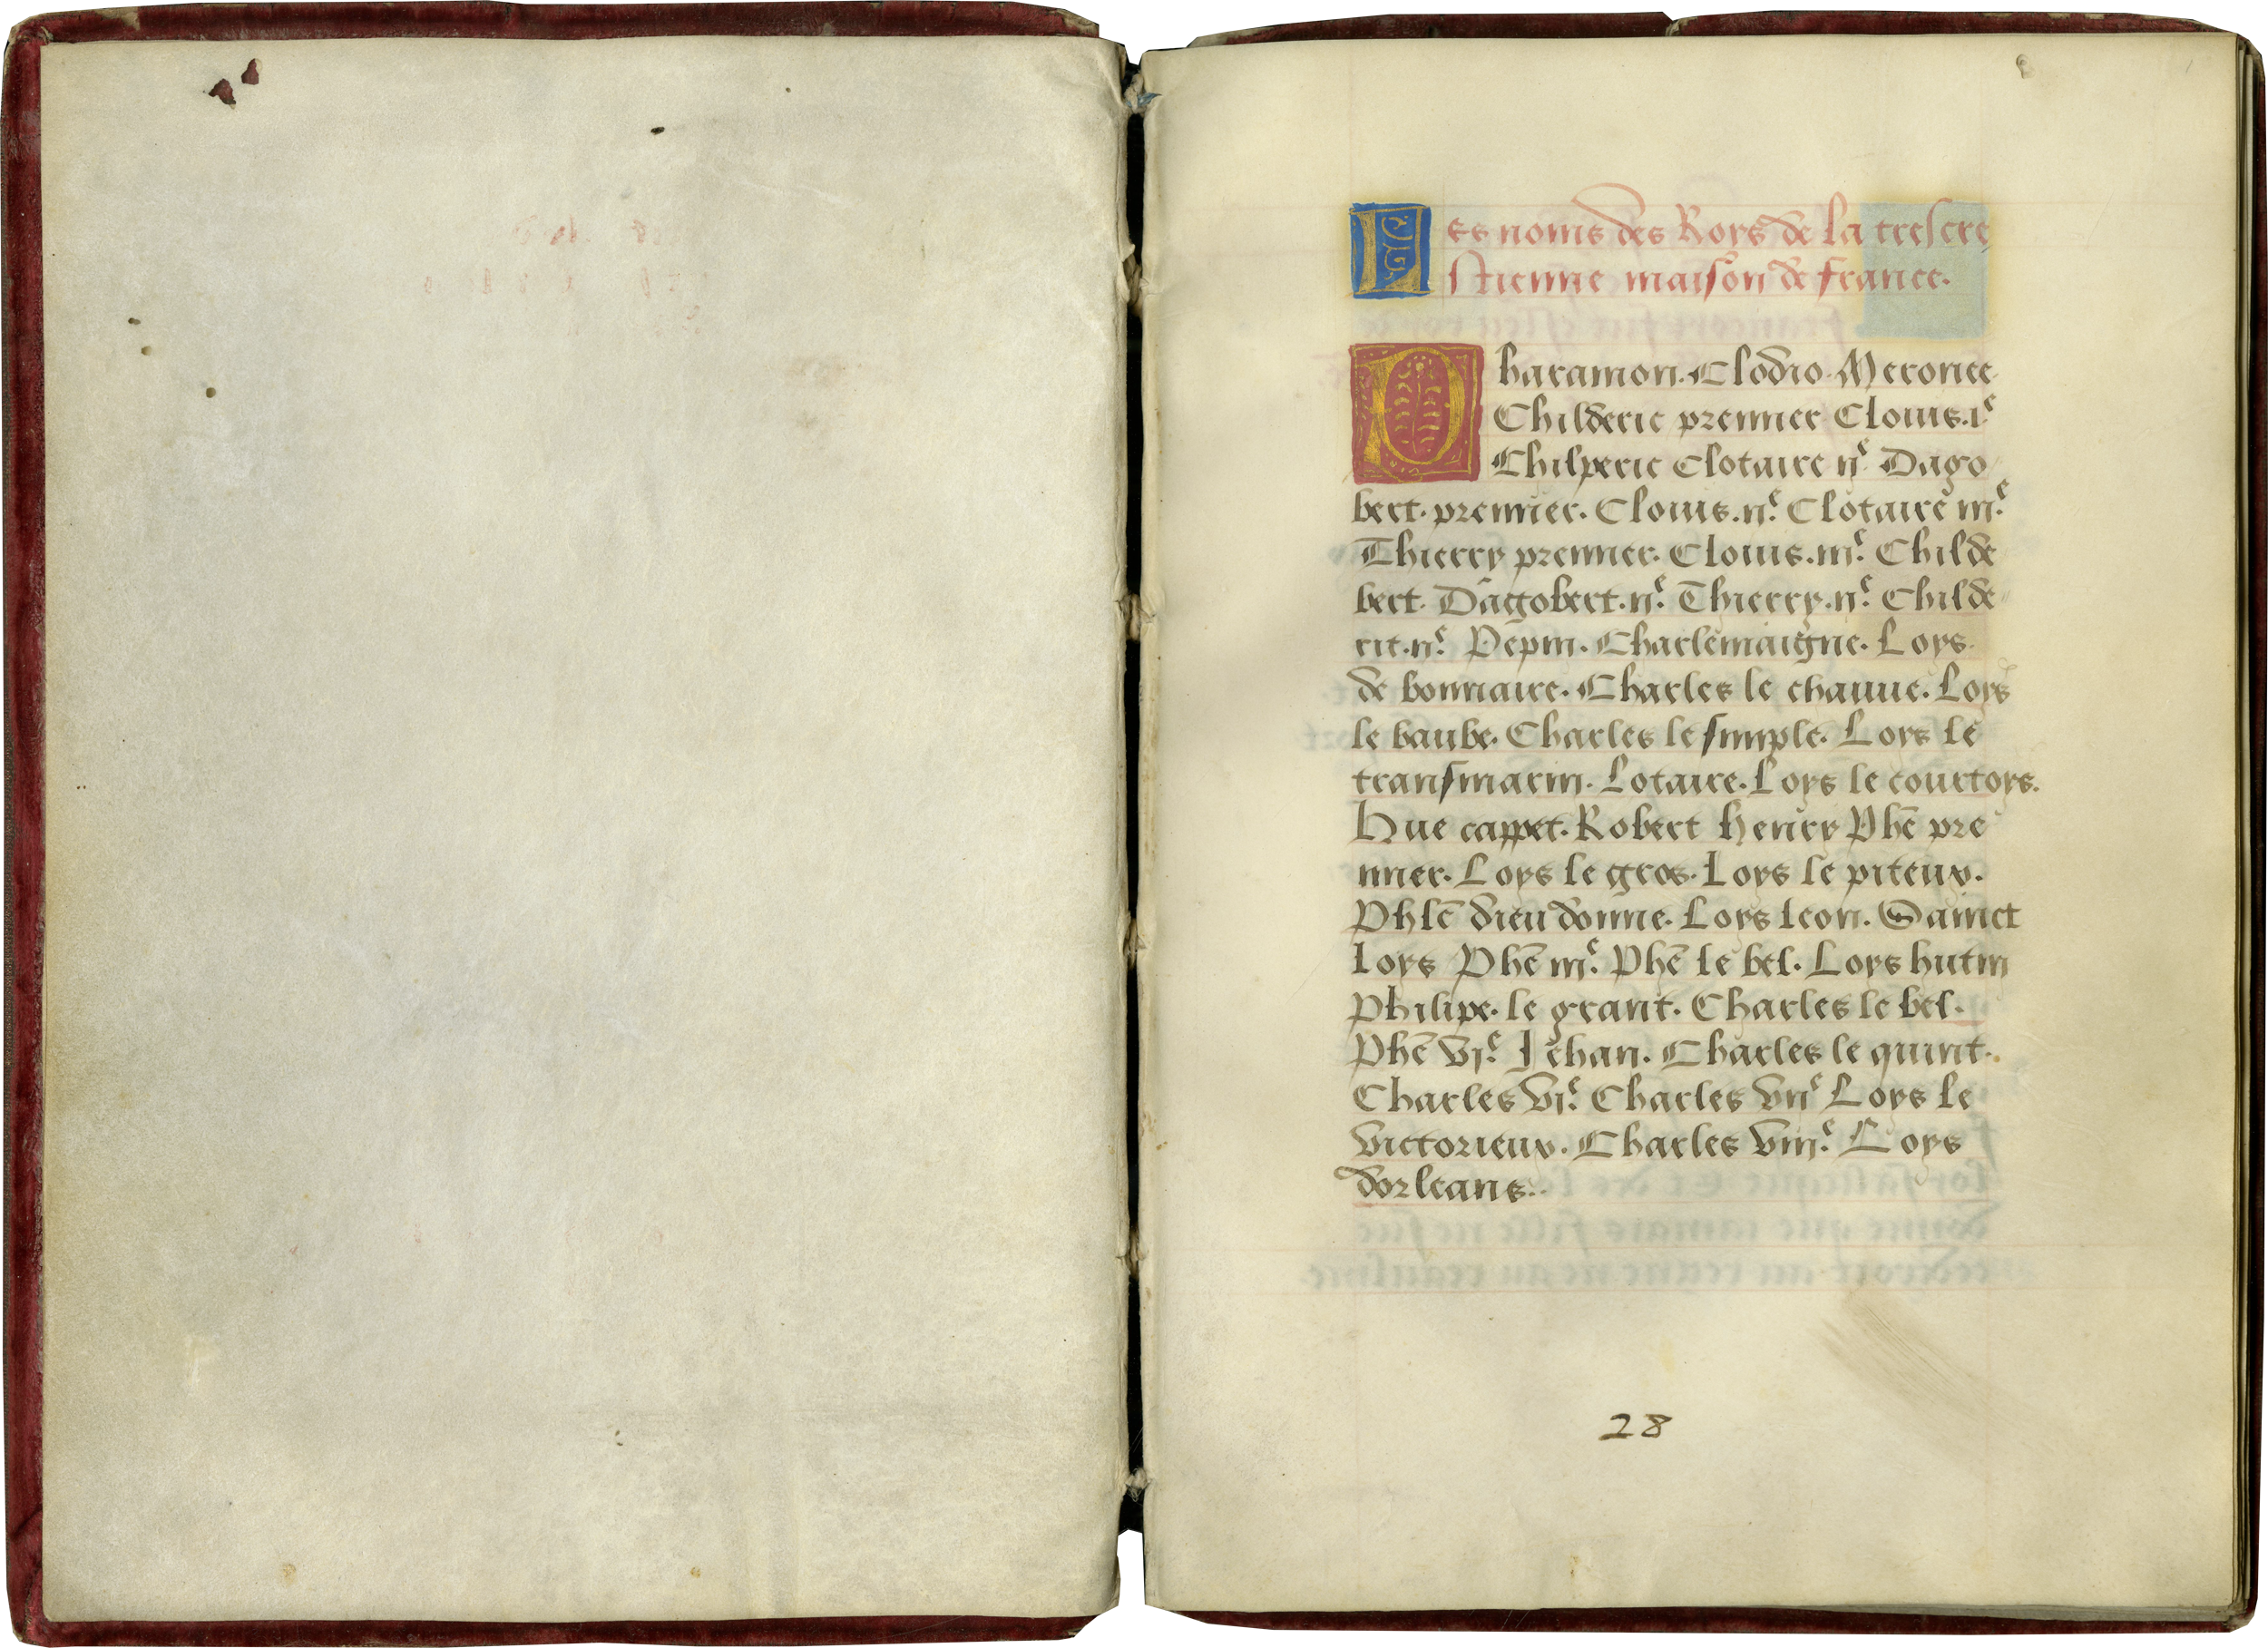 Les noms des Roys de la trescre
stienne maison de france.
Pharamon. Clodio. Merouee
Childeric premier Clouis. ie
Chilperic Clotaire iie Dago
bert. premier. Clouis. iie. Clotaire iiie.
Thierry premier. Clouis. iiie. Childe
bert. Dagobert. iie. Thierry. iie. Childe
rit. iie. Pepin. Charlemaigne. Loys
de bonnaire. Charles le chauue. Loys
le baube. Charles le simple. Loys le
transmarin. Lotaire. Loys le courtoys.
Hue cappet. Robert henry Phe pre
mier. Loys le gros. Loys le piteux.
Phle dieu donne. Loys leon. Sainct
Loys Phe iiie. Phe le bel. Loys hutin
Philipe. le grant. Charles le bel.
Phe vie. Jehan. Charles le quint.
Charles vie. Charles viie Loys le
victorieux. Charles viiie. Loys
dorleans.
28